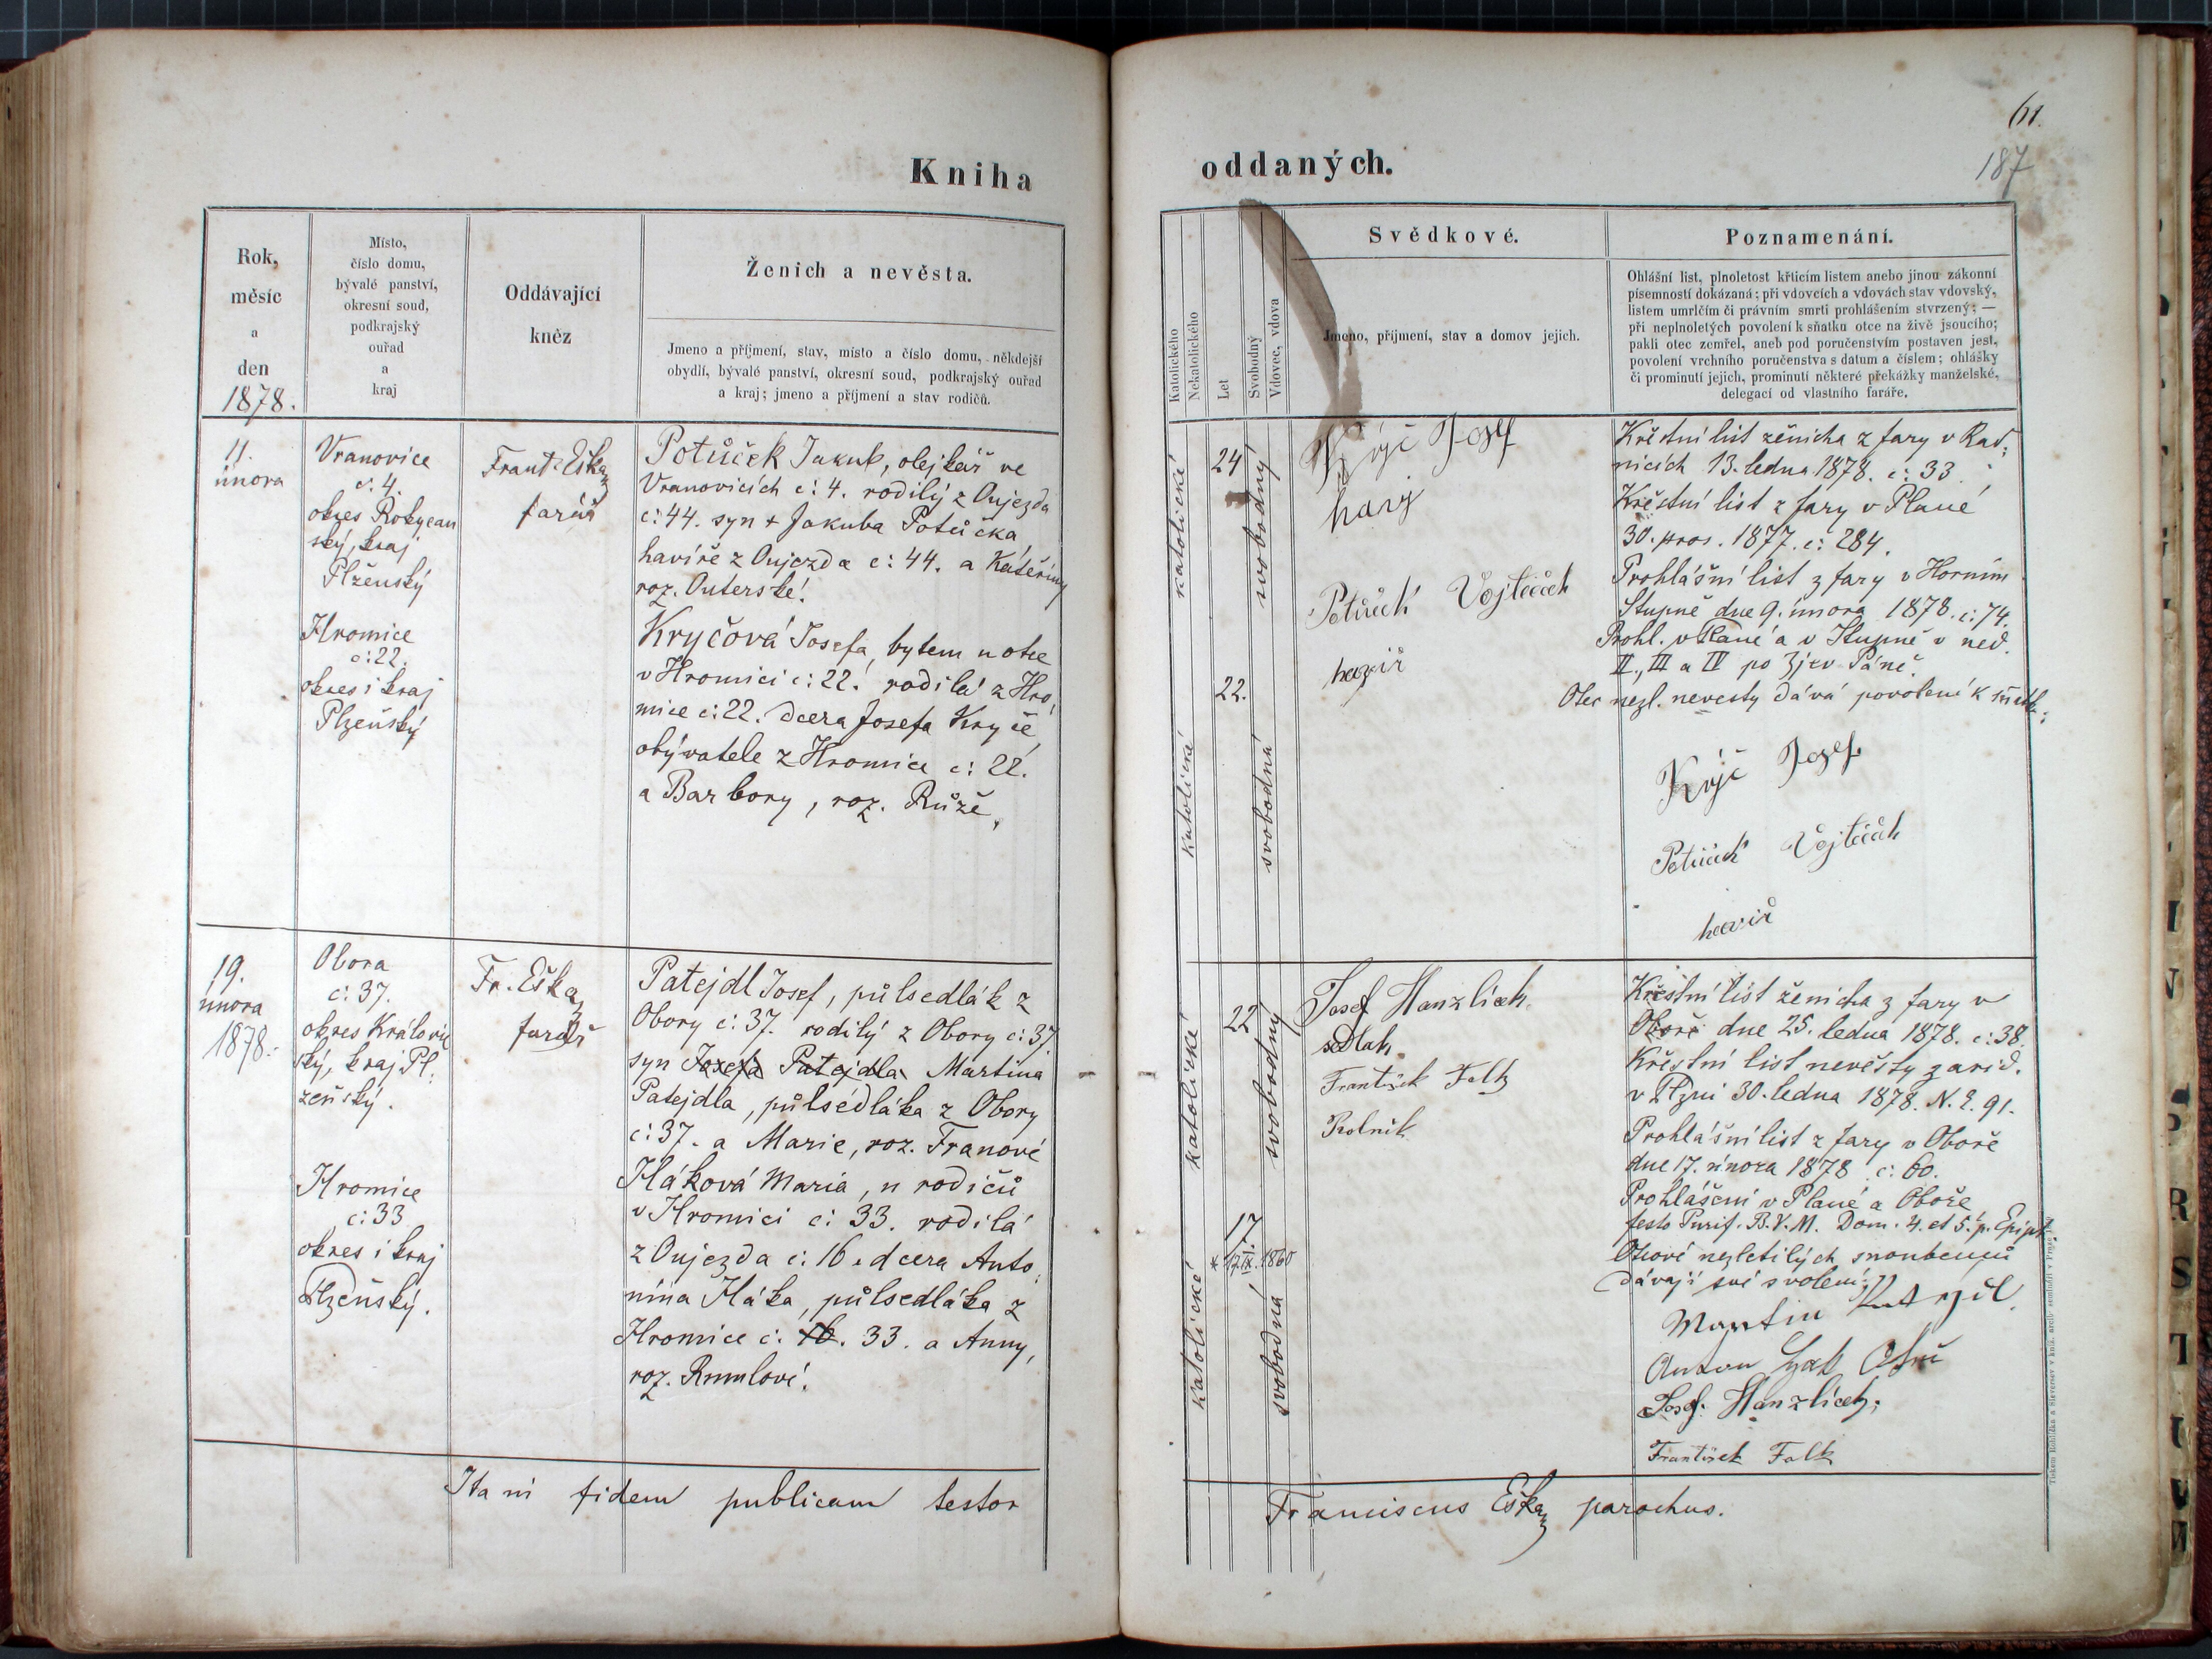 Kniha
Rok,
měsíc
a
den
1878.
Místo,
číslo domu,
bývalé panství,
okresní soud,
podkrajský
ouřad
a
kraj
Oddávající
kněz
Ženich a nevěsta.
Jmeno a příjmení, stav, místo a číslo domu, někdejší
obydlí, bývalé panství, okresní soud, podkrajský ouřad
a kraj; jmeno a příjmení a stav rodičů.
11.
února
Vranovice
č. 4.
okres Rokycan
ský, kraj
Plženský
Hromice
č: 22.
okres i kraj
Plzeňský
Frant. Eška
farář
Potůček Jakub, olejkář ve
Vranovicích č: 4. rodilý z Oujezda
č: 44. syn + Jakuba Potůčka,
havíře z Oujezda č: 44. a Kateřiny
roz. Outerské.
Kryčová Josefa, bytem u otce
v Hromici č: 22. rodilá z Hro
mice č: 22. dcera Josefa Kryče,
obývatele z Hromice č: 22.
a Barbory, roz. Růže,
19.
února
1878.
Obora
č: 37.
okres Královic
ký, kraj Pl:
zeňský.
Hromice
č: 33
okres i kraj
Plzeňský.
Fr. Eška
farář
Patejdl Josef, půlsedlák z
Obory č: 37. rodilý z Obory č: 37
syn Josefa Patejdla Martina
Patejdla, půlsedláka z Obory
č: 37. a Marie, roz. Franové
Hláková Maria, u rodičů
v Hromici č: 33. rodilá
z Oujezda č: 16. dcera Anto
nína Hláka, půlsedláka z
Hromice č. 16. 33. a Anny,
roz. Rumlové.
Ita ni fidem publicam testor
oddaných.
61.
187
Katolického
Nekatolického
Let
Svobodný
Vdovec, vdova
Svědkové.
Jmeno, příjmení, stav a domov jejich.
Poznamenání.
Ohlášní list, plnoletost křticím listem anebo jinou zákonní
písemností dokázaná; při vdovcích a vdovách stav vdovský,
listem umrlčím či právním smrti prohlášením stvrzený; —
při neplnoletých povolení k sňatku otce na živě jsoucího;
pakli otec zemřel, aneb pod poručenstvím postaven jest,
povolení vrchního poručenstva s datum a číslem; ohlášky
či prominutí jejich, prominutí některé překážky manželské,
delegací od vlastního faráře.
katolické
24
svobodný
katolická
22.
svobodná
Krýč Josef
havíř
Potůček Vojtěch
havíř
Křestní list ženicha z fary v Rad:
nicích 13. ledna 1878. č: 33.
Křestní list z fary v Plané
30. pros. 1877. č: 284.
Prohlášní list z fary v Horním
Stupně dne 9. února 1878. č: 74.
Prohl. v Plané a v Stupně v ned.
II., III a IV po Zjev Páně.
Otec nezl. nevesty dává povolení k
Krýč Josef
Potůček Vojtěch
havíř
katolické
22
svobodný
katolické
17.
* 17.IX.1860
svobodná
Josef Hanzlíček
sedlak
František Falk
Rolník
Křestní list ženicha z fary v
Oboře dne 25. ledna 1878. č: 38.
Křestní list nevěsty z arid.
v Plzni 30. ledna 1878. N. E. 91.
Prohlášní list z fary v Oboře
dne 17. února 1878 č: 60.
Prohlášení v Plané a Oboře
festo Purif. B.V.M. Dom. 4. et 5. p. Epiph
Otcové nezletilých snoubenců
dávají své svolení:
Martin
Anton
Josef Hanzlíček
František Falk
Franciscus Eška parochus.